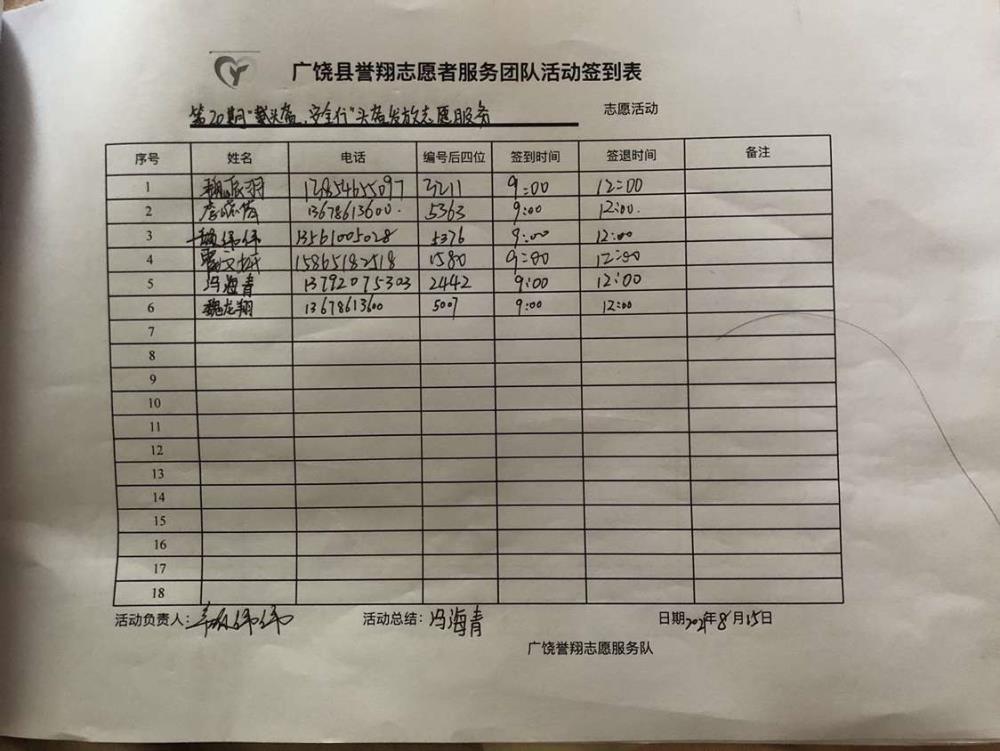 广饶县誉翔志愿者服务团队活动签到表
第20期"戴头盔、安全行"头盔发放志愿服务 志愿活动
序号 姓名 电话 编号后四位 签到时间 签退时间 备注
1 魏辰羽 3211 9:00 12:00
2 13678613600. 5363 9:00 12:00.
3 魏伟伟 13561005028 5376 9:00 12:00
4 15865182518 1580 9:00 12:00
5 冯海青 13792075303 2442 9:00 12:00
6 魏龙翔 13678613600 5007 9:00 12:00
7
8
9
10
11
12
13
14
15
16
17
18
活动负责人:魏伟伟 活动总结:冯海青 日期2021年8月15日
广饶誉翔志愿服务队